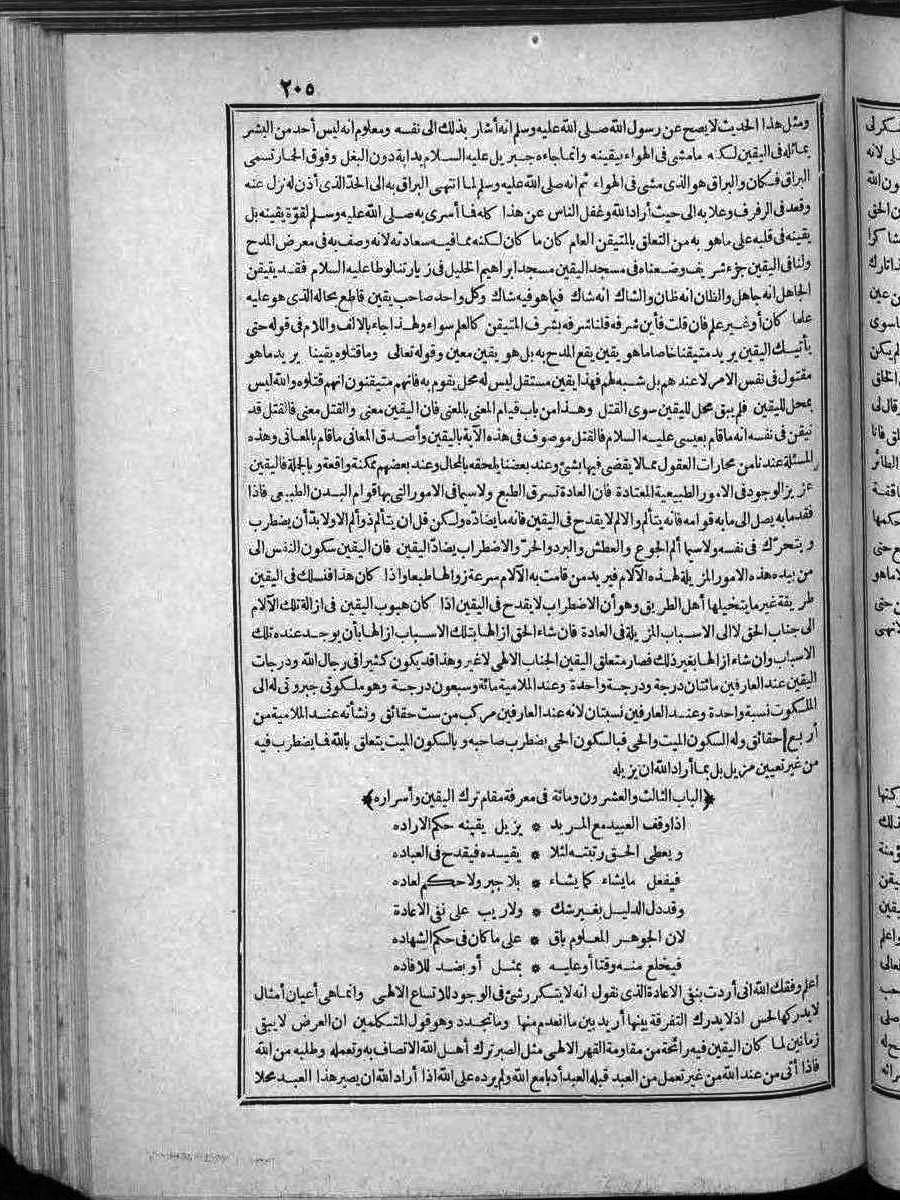 ٢٠٥
ومثل هذا الحديث لا يصح عن رسول الله صلى الله عليه وسلم انه أشار بذلك الى نفسه ومعلوم انه ليس أحد من البشر
يماثله فى اليقين لكنه مامشى فى الهواء بيقينه وانما جاءه جبريل عليه السلام بدابة دون البغل وفوق الحمار تسمى
البراق فكان والبراق هو الذى مشى فى الهواء ثم انه صلى الله عليه وسلم لما انتهى البراق به الى الحد الذى أذن له نزل عنه
وقعد فى الرفرف وعلا به الى حيث أراد الله وغفل الناس عن هذا كله فما أسرى به صلى الله عليه وسلم لقوة يقينه بل
يقينه فى قلبه على ماهو به من التعلق بالمتيقن العام كان ما كان لكنه مما فيه سعادته لانه وصف به فى معرض المدح
ولنا فى اليقين جزء شريف وضعناه فى مسجد اليقين مسجد ابراهيم الخليل فى زيارتنا لوطا عليه السلام فقد يتيقن
الجاهل انه جاهل والظان انه ظان والشاك انه شاك فيما هو فيه شاك وكل واحد صاحب يقين قاطع بحاله الذى هو عليه
علما كان أو غير علم فان قلت فأين شرفه قلنا شرفه بشرف المتيقن كالعلم سواء ولهذا جاء بالالف واللام فى قوله حتى
يأتيك اليقين يريد متيقنا خاصا ماهو يقين يقع المدح به بل هو يقين معين وقوله تعالى وماقتلوه يقينا يريد ماهو
مقتول فى نفس الامر لا عندهم بل شبه لهم فهذا يقين مستقل ليس له محل يقوم به فانهم متيقنون انهم قتلوه والله ليس
بمحل لليقين فلم يبق محل لليقين سوى القتل وهذا من باب قيام المعنى بالمعنى فان اليقين معنى والقتل معنى فالقتل قد
تيقن فى نفسه انه ماقام بعيسى عليه السلام فالقتل موصوف فى هذه الآية باليقين وأصدق المعانى ماقام بالمعانى وهذه
المسئلة عندنا من محارات العقول مما لا يقضى فيها بشئ وعند بعضنا يلحقه بالمحال وعند بعضهم ممكنة واقعة وبالجلة فاليقين
عزيز الوجود فى الامور الطبيعية المعتادة فان العادة تسرق الطبع ولا سيما فى الامور التى بها قوام البدن الطبيعى فاذا
فقد مابه يصل الى مابه قوامه فانه يتألم والالم لا يقدح فى اليقين فانه مايضاده ولكن قل ان يتألم ذو ألم الا ولا بد أن يضطرب
ويتحرك فى نفسه ولا سيما ألم الجوع والعطش والبرد والحر والاضطراب يضاد اليقين فان اليقين سكون النفس الى
من بيده هذه الامور المزيلة لهذه الآلام فيريد من قامت به الآلام سرعة زوالها طبعا واذا كان هذا فنسلك فى اليقين
طريقة غير ما يتخيلها أهل الطريق وهو أن الاضطراب لا يقدح فى اليقين اذا كان هبوب اليقين فى ازالة تلك الآلام
الى جناب الحق لا الى الاسباب المزيلة فى العادة فان شاء الحق ازالها بتلك الاسباب ازالها بأن يوجد عنده تلك
الاسباب وان شاء ازالها بغير ذلك فصار متعلق اليقين الجناب الالهى لا غير وهذا قد يكون كثيرا فى رجال الله ودرجات
اليقين عند العارفين مائتان درجة ودرجة واحدة وعند الملامية مائة وسبعون درجة وهو ملكوتى جبروتى له الى
الملكوت نسبة واحدة وعند العارفين نسبتان لانه عند العارفين مركب من ست حقائق ونشأته عند الملامية من
أربع حقائق وله السكون الميت والحى فبالسكون الحى يضطرب صاحبه وبالسكون الميت يتعلق بالله فيما يضطرب فيه
من غير تعيين مزيل بل بما أراد الله ان يزيله
﴿الباب الثالث والعشرون ومائة فى معرفة مقام ترك اليقين وأسراره﴾
اذا وقف العبيد مع المريد * يزيل يقينه حكم الاراده
ويعطى الحق رتبته لئلا * يقيده فيقدح فى العباده
فيفعل مايشاء كما يشاء * بلا جبر ولا حكم لعاده
وقد دل الدليل بغير شك * ولا ريب على نفى الاعادة
لان الجوهر المعلوم باق * على ما كان فى حكم الشهاده
فيخلع منه وقتا أو عليه * بمثل أو بضد للافاده
اعلم وفقك الله انى أردت بنفى الاعادة الذى نقول انه لا يتكرر شئ فى الوجود للاتساع الالهى وانما هى أعيان أمثال
لا يدركها الحس اذ لا يدرك التفرقة بينها أريد بين ما انعدم منها وماتجدد وهو قول المتكلمين ان العرض لا يبقى
زمانين لما كان اليقين فيه رائحة من مقاومة القهر الالهى مثل الصبر ترك أهل الله الاتصاف به وتعمله وطلبه من الله
فاذا أتى من عند الله من غير تعمل من العبد قبله العبد أدبا مع الله ولم يرده على الله اذا أراد الله ان يصير هذا العبد محلا